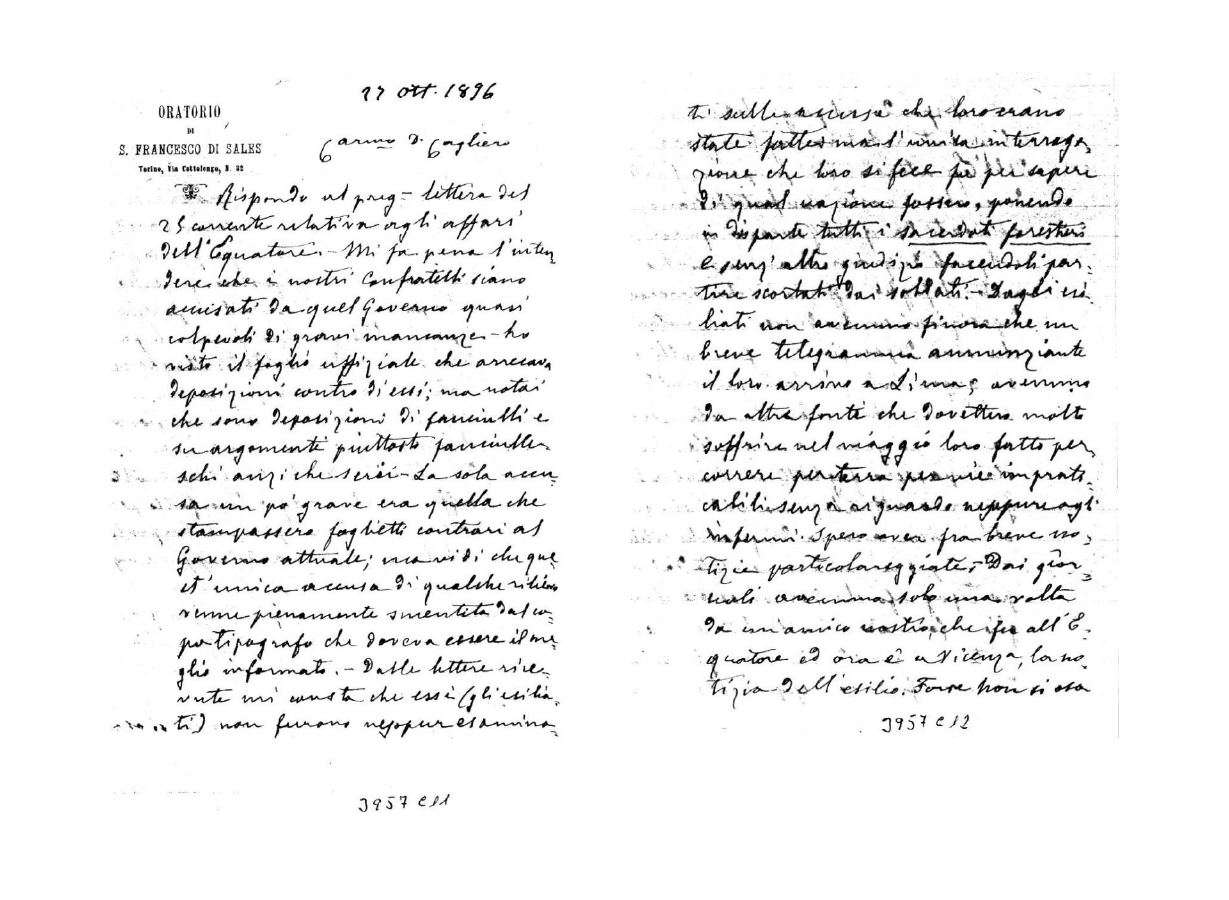 27 ott. 1896
ORATORIO
DI
S. FRANCESCO DI SALES
Torino, Via Cottolengo, N. 32
Carmo D. Cagliero
Rispondo al preg- lettera del
25 corrente relativa agli affari
dell'Equatore.- Mi fa pena l'inten-
dere che i nostri Confratelli siano
accusati da quel Governo quasi
colpevoli di gravi mancanze- ho
visto il foglio uffiziale che arrecava
deposizioni contro di essi; ma notai
che sono deposizioni di fanciulli e
su argomenti piuttosto fanciulle-
schi anzi che serei- La sola accu-
sa un po' grave era quella che
stampassero foglietti contrari al
Governo attuale; ma vidi che que-
st'unica accusa di qualche rilievo
venne pienamente smentita dal ca-
po tipografo che doveva essere il me-
glio informato.- Dalle lettere rice-
vute mi consta che essi (gli esilia-
ti) non furono neppur esamina-
3957 C11
ti sulle accuse che loro erano
state fatte; ma l'unica interroga-
zione che loro si fece fu per sapere
di qual nazione fossero, ponendo
in disparte tutti i sacerdoti forestieri
e senz'altro giudizio facendoli par-
tire scortati dai soldati.- Dagli esi-
liati non avemmo finora che un
breve telegramma annunziante
il loro arrivo a Lima; avemmo
da altra fonte che dovettero molto
soffrire nel viaggio loro fatto per-
correre per terra per vie imprati-
cabili senza riguardo neppure agli
infermi. Spero aver fra breve no-
tizie particolareggiate.- Dai gior-
nali avemmo solo una volta
da un amico nostro che fu all'E-
quatore ed ora è a Vicenza, la no-
tizia dell'esilio. Forse non si osa
3957 C12